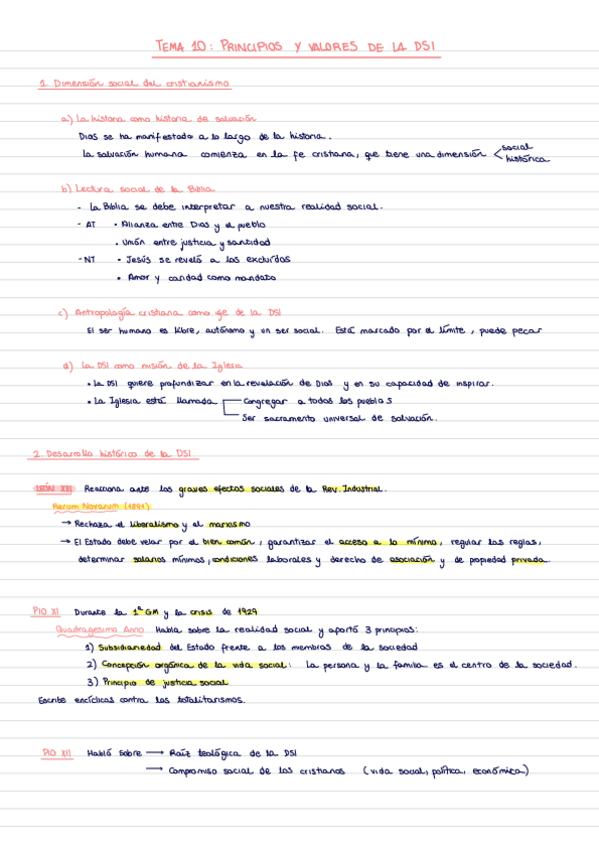 TEMA 10: PRINCIPIOS Y VALORES DE LA DSI
1. Dimensión social del cristianismo
a) La historia como historia de salvación
Dios se ha manifestado a lo largo de la historia.
La salvación humana comienza en la fe cristiana, que tiene una dimensión < social
histórica
b) Lectura social de la Biblia
- La Biblia se debe interpretar a nuestra realidad social.
- AT • Alianza entre Dios y el pueblo
• Unión entre justicia y santidad
- NT • Jesús se reveló a los excluidos
• Amor y caridad como mandato
c) Antropología cristiana como eje de la DSI
El ser humano es libre, autónomo y un ser social. Está marcado por el límite, puede pecar
d) La DSI como misión de la Iglesia
• La DSI quiere profundizar en la revelación de Dios y en su capacidad de inspirar.
• La Iglesia está llamada Congregar a todos los pueblos
Ser sacramento universal de salvación.
2. Desarrollo histórico de la DSI
LEÓN XIII Reacciona ante los graves efectos sociales de la Rev. Industrial.
Rerum Novarum (1891)
→ Rechaza el liberalismo y el marxismo
→ El Estado debe velar por el bien común, garantizar el acceso a lo mínimo, regular las reglas,
determinar salarios mínimos, condiciones laborales y derecho de asociación y de propiedad privada.
PIO XI Durante la 1ª GM y la crisis de 1929
Quadragesimo Anno Habla sobre la realidad social y aportó 3 principios:
1) Subsidiariedad del Estado frente a los miembros de la sociedad
2) Concepción orgánica de la vida social: La persona y la familia es el centro de la sociedad.
3) Principio de justicia social
Escribe encíclicas contra los totalitarismos.
PIO XII Habló sobre → Raíz teológica de la DSI
→ Compromiso social de los cristianos (vida social, política, económica)